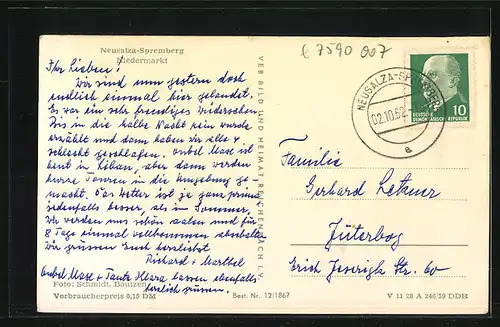 Neusalza-Spremberg
Niedermarkt
€ 7590 007
Ihr Lieben!
Wir sind nun gestern doch
endlich einmal hier gelandet.
Es war ein sehr freudiges Wiedersehen
Bis in die halbe Nacht rein wurde
erzählt und dann haben wir alle
schlecht geschlafen. Onkel Max ist
heut in Löbau, aber dann werden
kurze Touren in die Umgebung ge-
macht. Das Wetter ist ja ganz prima
jedenfalls besser, als im Sommer.
Wir werden uns schön aalen und für
8 Tage einmal vollkommen abschalten
Wir grüssen Euch herzlichst
Richard + Marthel
Onkel Max + Tante Klara lassen ebenfalls
herzlich grüssen.
Foto: Schmidt, Bautzen
Verbraucherpreis 0,15 DM
Best. Nr. 12/1867
V 11 28 A 246/59 DDR
VEB BILD UND HEIMAT REICHENBACH I. V.
NEUSALZA-SPREMBERG
02.10.62
a
10
DEUTSCHE
DEMOKRATISCHE REPUBLIK
Familie
Gerhard
Jüterbog
Str. 60